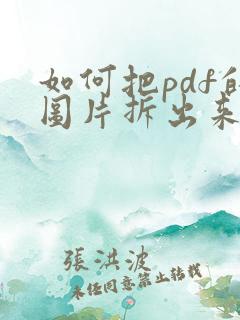 如何把pdf的
图片拆出来
張洪波
未经同意禁止转载